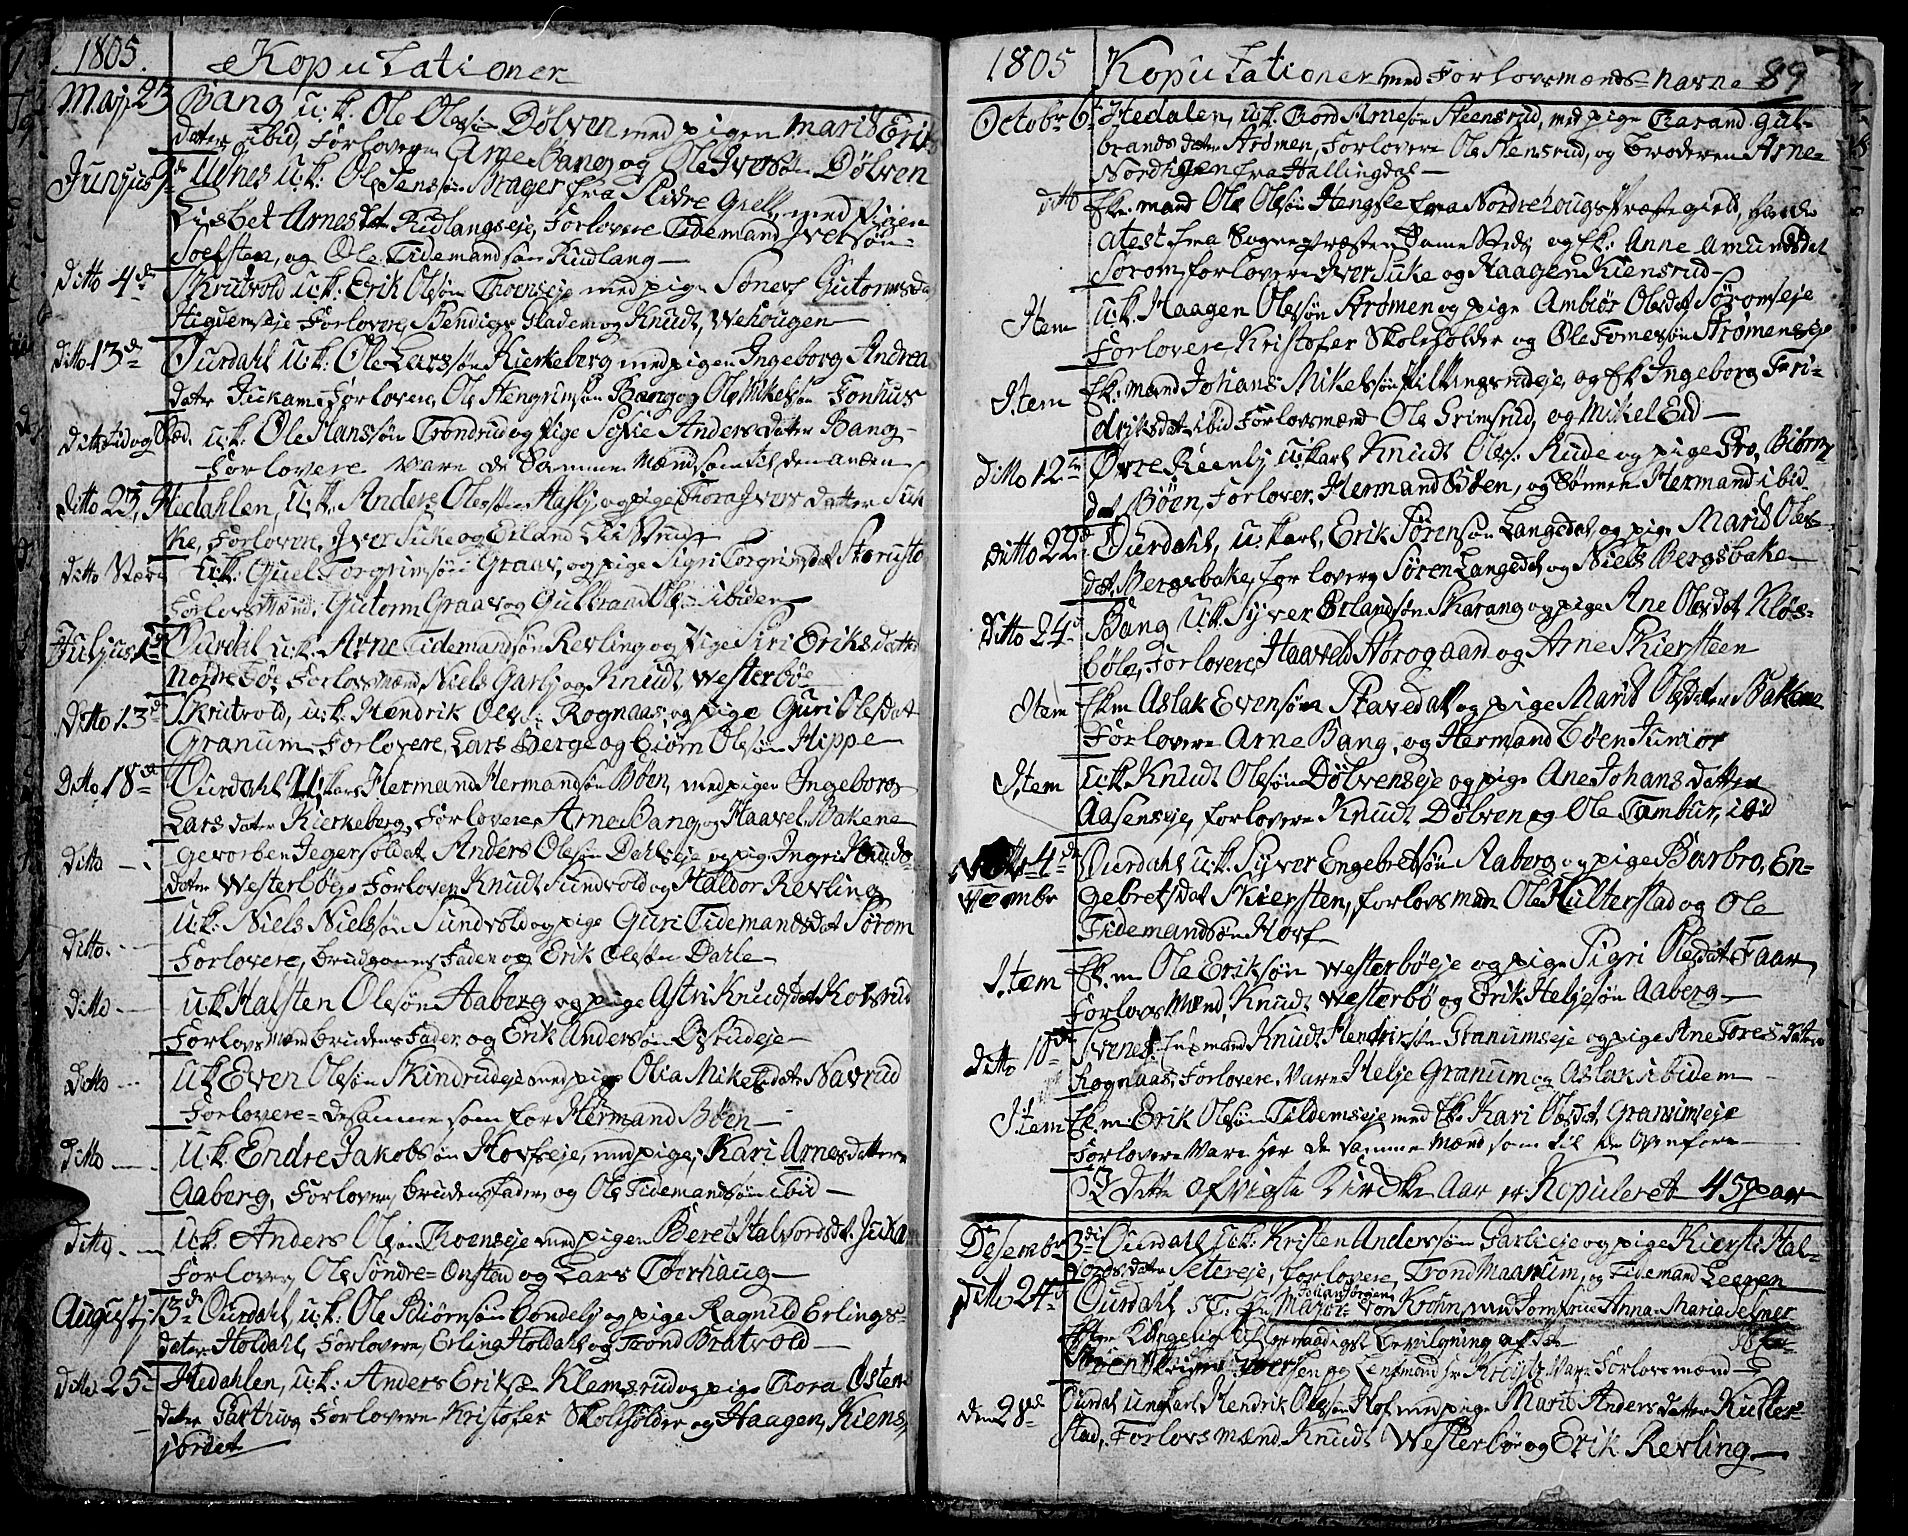 1805.
Kopulationer
Maj 23 Bang u:k. Ole Olesøn Dølven med pigen Marit Eriks
dater ibid, Forlovere Arne Bang og Ole Iversøn Dølven
Junjus 9de Ulnes u:k: Ole Jensøn Brager fra Slidre Gield, med Pigen
Lisbet Arnesdat. Rudlangseje, Forlovere Tidemand Iversøn
og Ole Tidemandsøn Rudlang
Ditto 4de Skrutvold u:k: Erik Olesøn Thoenseje med pige Gutormsda
Higdenseje Forlovere Bendigt Gladem og Knudt Wehougen
Ditto 13de Ourdahl u:k: Ole Larssøn Kierkeberg med pigen Ingeborg Andreas
dater Juckam Forlovere, Ole Hengrimsøn Bang og Ole Mikelsøn Fonhus
Ditto Tid og Sted. u:k: Ole Hanssøn Trondrud og Pige Sefie Anders Dater Bang
Forlovere vare de Samme Mænd som til den anden
Ditto 23, Hedahlen, u:k: Anders Olesøn Hasly, og pige Thora Ivers datter Suke
ke, Forlovere, Iver Suke og Erland
Ditto u:k: Torgrimsøn Graav, og pige Sigri Torgrimsdat
Forlovs Mænd, Gutorm Graav og Gulbrand Olesøn ibidem
Juljus Ourdal u:k: Arne Tidemandsøn Revling og Pige Siri Eriks datter
Nordre Bøe Forlovs Mænd, Niels Garly og Knudt Westerbøe
Ditto 13de Skrutvold, u:k: Hendrik Oles: Rognaas, og pige Guri Olesdat
Granum, Forlovere, Lars Berge og Biørn Olesøn Hippe
Ditto 18de Ourdahl, U:kars Hermand Hermandsøn Bøen, med pigen Ingeborg
Lars dater Kierkeberg, Forlovere Arne Bang, og Haavel Bakene
Ditto gevorben Jegersoldat Anders Olesøn Dahlseje og pig. Ingri Knuds
dater Westerbøeje Forlovere Knudt Sundvold og Haldor Revling
Ditto. u:k: Niels Nielssøn Sundvold og pige Guri Tidemandsdat Sørom
Forlovere, brudgomens Fader og Erik Olesøn Dahle
Ditto u:k Halsten Olesøn Aaberg og pige Astri Knudsdat Kolsrud
Forlovs Mænd brudens Fader og Erik Andersøn
Ditto u:k Even Olesøn Skindrudeje med pige Olia Mikelsdater Navrud
Forlovere = de samme som for Hermand Bøen
Ditto u:k: Endre Jakobsøn Hovseje, med pige, Kari Arnesdatter
Aaberg, Forlovere brudens fader og Ole Tidemandsøn ibid
Ditto u:k: Anders Olesøn Thoenseje med pigen Beret Halvordsdt. Jukam
Forlovere, Ole Søndre-Onstad og Lars Tøerhaug
August: 13de Ourdahl, u:k: Ole Biørnsøn og pige Ragnild Erlings-
dater Holdahl, Forlovere, Erling Holdahl og Trond Bratvold
Ditto 25 Hedahlen, u:k: Anders Eriksøn Klemsrud og pige Thora Østens
dater Garthus Forlovere Kristofer Skoleholder og Haagen Kiens-
jordet
1805 Kopulationer med Forlovsmænds=navne 89
Octobr. 6te Hedalen, u:k. Thord Arnesøn Steensrud, med pige Tharand Gul-
brands dater Strømen, Forlovere Ole Stensrud, og Broderen Arne
Nordigen fra Hallingdal
ditto Ek: mand Ole Olesøn Hengsle fra Nordrehougs Præstegield, havde
atest fra Sognepræsten Samesteds og Ek: Anne Amundsdat
Sørom, forlovere Iver Suke og Haagen Kiensrud
Item u:k. Haagen Olesøn Strømen og pige Ambiør Olesdat. Søromseje
Forlovere, Kristofer Skoleholder og Ole Tomesøn Strømenseje
Item Ek: mand Johans Mikelssøn og Ek Ingeborg Fri-
driksdat ibid Forlovsmænd Ole Grimsrud, og Mikel Eid
Ditto 12te Øvre Reenly u:karl Knudt Oles: Rude og pige Gro Biørns
dat Bøen, Forlover. Hermand Bøen, og Sønnen Hermand ibid
Ditto 22de Ourdahl, u:karl, Erik Sørensøn Langedal og pige Marit Oles-
dat Bergsbake, for lovere Søren Langedal og Niels Bergsbake
Ditto 24de Bang u:k Syver Erlandsøn Skarang og pige Ane Olesdat Kløs-
bøle, Forlovere Haaveld Nørogaard og Arne Skiersteen
Item Ekm Aslak Evensøn Stavedal og pige Marit Olesdater Bakene
Forlovere Arne Bang, og Hermand Bøen Junior
Item u:k. Knudt Olesøn Dølvenseje og pige Ane Johans datter
Aasenseje, forlovere Knudt Dølven og Ole Tambur, ibid
4de Ourdahl u:k. Syver Engebretsøn Aaberg og pige Barbro, En-
vember gebretsdat Skiersten, forlovs mæn Ole Kulterstad og Ole
Tidemandsøn Hovf
Item Ek.m Ole Eriksøn Westerbøeje og pige Sigri Olesdat Faar
Forlovs Mænd, Knudt Westerbø og Erik Heljesøn Aaberg
ditto 10de Svenes Knudt Hendriksøn Granumseje og pige Ane Tores dater
Rognaas, Forlovere Vare Helje Granum og Aslak ibidem
Item Ek.m. Erik Olesøn Tildemseje med Ek: Kari Olesdat Granumseje
Forlovere Vare her de Samme Mænd som til de ovenfore
I dette afvigte Kirdke Aar er Kopuleret 45 par
Desembr 3die Ourdahl u:k: Kristen Anderssøn Garlieje og pige Kiersti Hal-
vorsdater Setereje, forlovere, Trond Maanum, og Tidemand Leeren
Ditto 24de Ourdahl S.T. Hr Major Johan Jørgen von Krohn, med Jomfrue Anna Maria Jesner
efter Kongelig allernaadigst Bevilgning af
og Lensmand Vare Forlovsmænd
den 28de Ourdal ungkarl Hendrik Olesøn Hof med pige Marit Anders datter Kulter-
stad, Forlovs mænd Knudt Westerbøe og Erik Revling